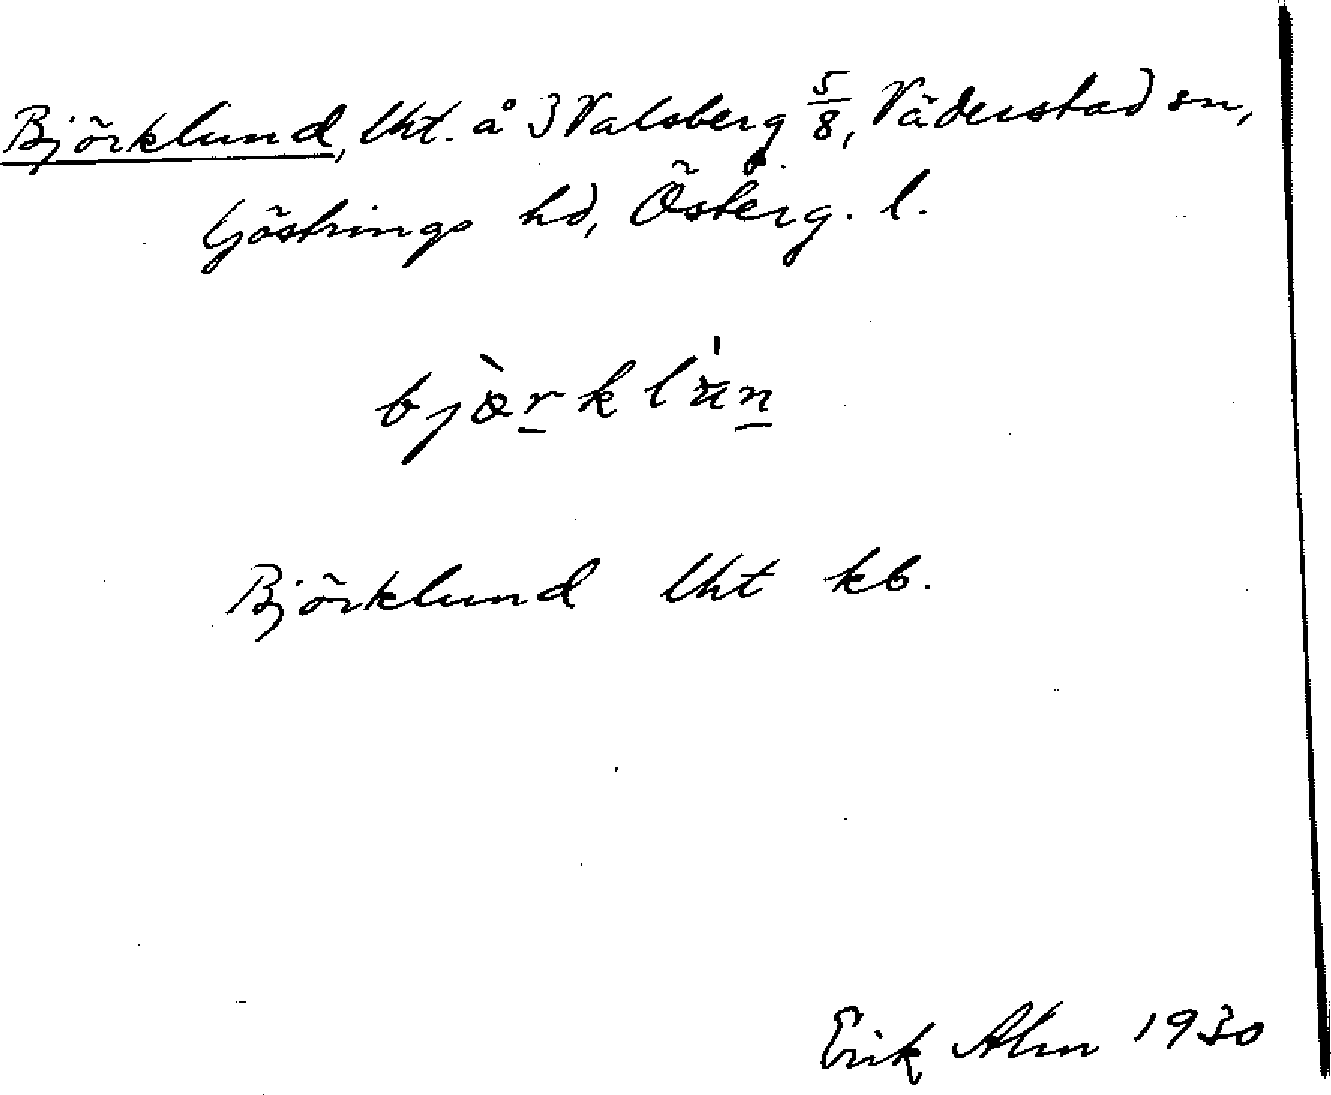 Björklund, lht. å 3 Valsberg 5/8, Väderstad sn,
Göstrings hd, Österg. l.
bjæ̀rklu̍n
Björklund lht kb.
Erik Alm 1930